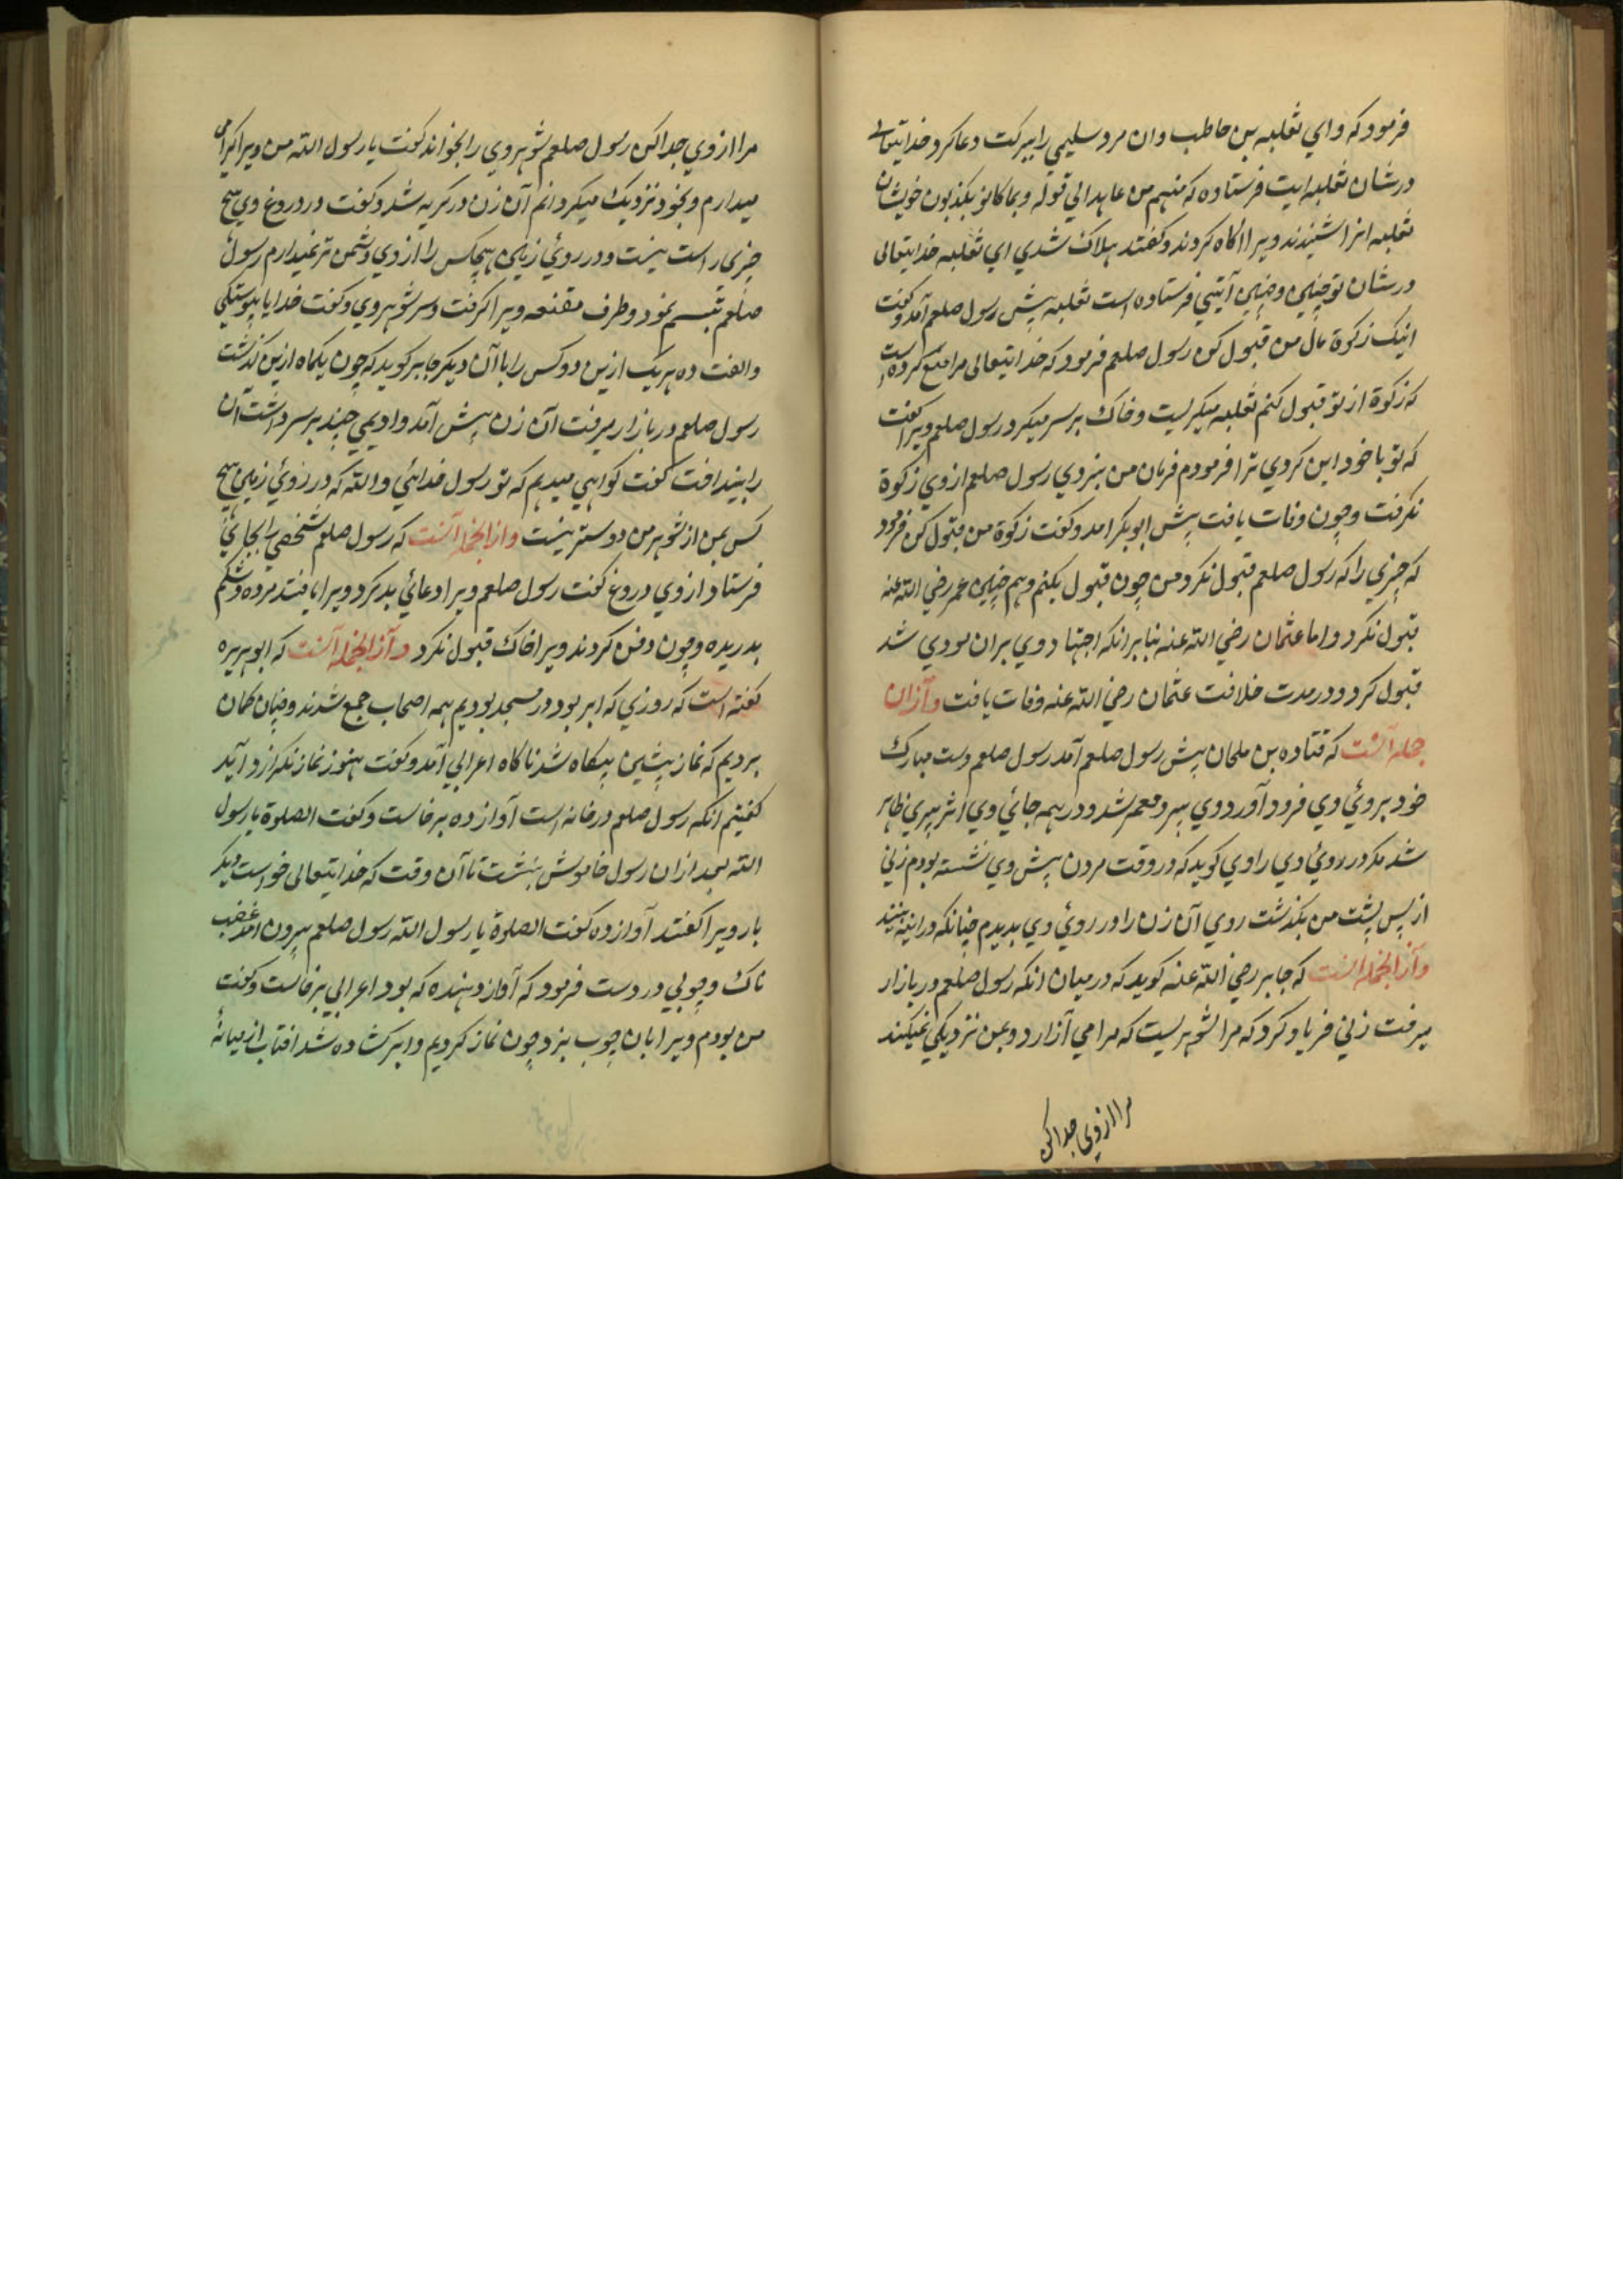 فرمود که وای ثعلبه بن حاطب وان مرد سلیمی را ببرکت دعا کرد خدایتعالی
درشان ثعلبه ایت فرستاده که منهم من عاهد الی قوله وبما کانو یکذبون خویشان
ثعلبه انرا شنیدند ویرا اکاه کردند وکفتند هلاک شدی ای ثعلبه خدایتعالی
درشان تو چنین وچنین آیتی فرستاده است ثعلبه پیش رسول صلعم آمد وکفت
اینک زکوة مال من قبول کن رسول صلعم فرمود که خدایتعالی مرا منع کرده است
که زکوة از تو قبول کنم ثعلبه میکریست وخاک بر سر میکرد رسول صلعم ویرا کفت
که تو با خود این کردی ترا فرمودم فرمان من نبردی رسول صلعم از وی زکوة
نکرفت وچون وفات یافت پیش ابو بکر امد وکفت زکوة من قبول کن فرمود
که چیزی را که رسول صلعم قبول نکرد من چون قبول بکنم وهم چنین عمر رضی الله عنه
قبول نکرد واما عثمان رضی الله عنه بنا برانکه اجتهاد وی بران مودی شد
قبول کرد ودر مدت خلافت عثمان رضی الله عنه وفات یافت وازان
جمله آنست که قتاده بن ملحان پیش رسول صلعم آمد رسول صلعم دست مبارک
خود بروئ وی فرود آورد وی پیر ومعمر شد ودر همه جائ وی اثر پیری ظاهر
شد مکر در روئ وی راوی کوید که در وقت مردن پیش وی نشسته بودم زنی
از پس پشت من بکذشت روی آن زن را در روئ وی بدیدم چنانکه در اینه بینند
وازانجمله آنست که جابر رضی الله عنه کوید که در میان انکه رسول صلعم در بازار
میرفت زنی فریاد کرد که مرا شوهریست که مرا می آزارد وبمن نزدیکی نمیکند
مرا از وی جدا کن
مرا از وی جدا کن رسول صلعم شوهر وی را بخواند کفت یا رسول الله من ویرا کرامی
میدارم وبخود نزدیک میکردانم آن زن در کریه شد وکفت در دروغ وی هیچ
چیزی راست نیست ودر روئ زمین هیچکس را از وی دشمن تر نمیدارم رسول
صلعم تبسم نمود وطرف مقنعه ویرا کرفت وسر شوهر وی وکفت خدایا پیوستکی
والفت ده هر یک ازین دو کس را با آن دیکر جابر کوید که چون یکماه ازین کذشت
رسول صلعم در بازار میرفت آن زن پیش آمد وادیمی چند بر سر داشت آن
را بینداخت کفت کواهی میدهم که تو رسول خدائی والله که در روئ زمین هیچ
کس بمن از شوهر من دوستر نیست وازانجمله آنست که رسول صلعم شخصی را بجائ
فرستاد از وی دروغ کفت رسول صلعم ویرا دعائ بد کرد ویرا یافتند مرده وشکم
بدریده وچون دفن کردند ویرا خاک قبول نکرد وازانجمله آنست که ابو هریره
کفته است که روزی که ابر بود در مسجد بودیم همه اصحاب جمع شدند وچنان کمان
بردیم که نماز پیشین بیکاه شد ناکاه اعرابی آمد وکفت هنوز نماز نکزارد آید
کفتیم انکه رسول صلعم در خانه است آواز ده برخاست وکفت الصلوة یا رسول
الله بعد ازان رسول خاموش بنشست تا آن وقت که خدایتعالی خواست دیکر
بار ویرا کفتند آواز ده کفت الصلوة یا رسول الله رسول صلعم بیرون امد غضب
ناک وچوبی در دست فرمود که آواز دهنده که بود اعرابی برخاست وکفت
من بودم ویرا بان چوب بزد وچون نماز کردیم وابر کشاده شد افتاب از میانه